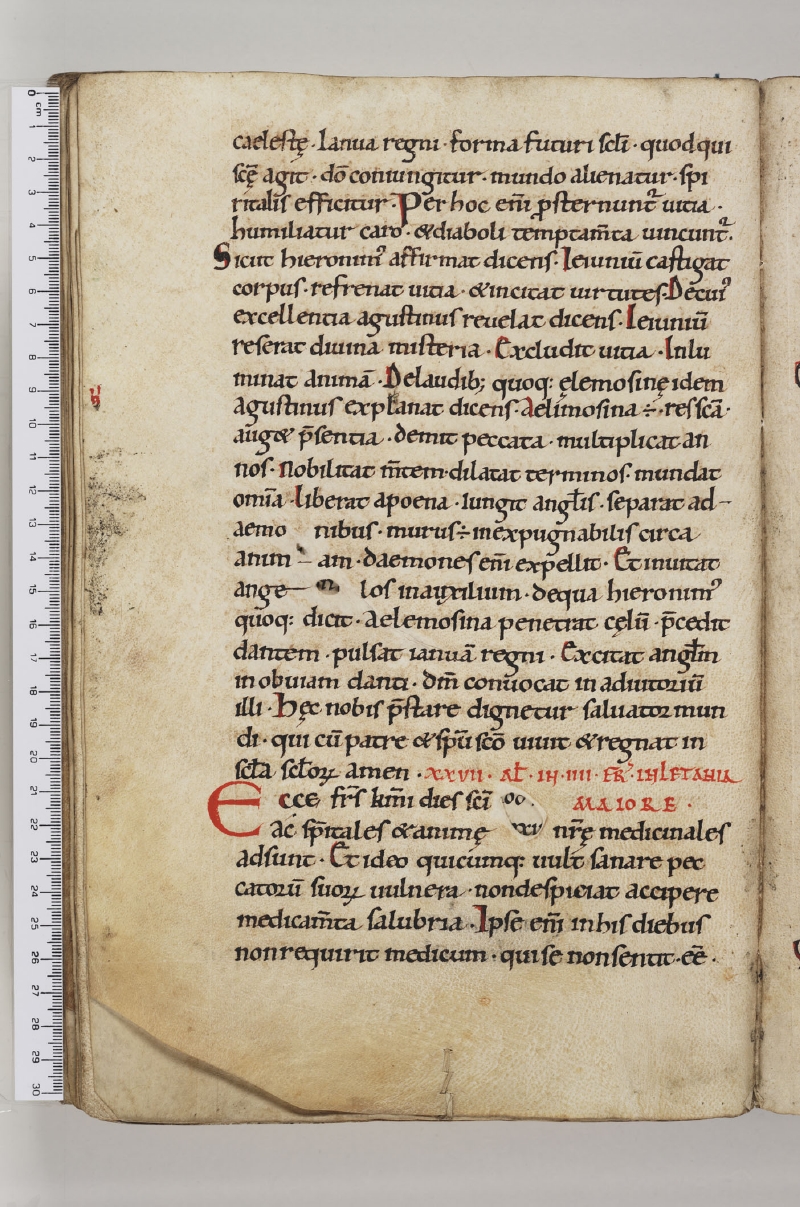 caelestę · Ianua regni · forma futuri scłi · quod qui
scę̄ agit · dō coniungitur · mundo alienatur · spi
ritalis efficitur · Per hoc em̄ p̄sternunt᷑ uitia ·
humiliatur caro · & diaboli temptam̄ta uincunt᷑.
Sicut hieronim᾽ affirmat dicens · Ieiuniū castigat
corpus · refrenat uitia · & incitat uirtutes · De cui᾽
excellentia agustinus reuelat dicens · Ieiuniū
reserat diuina misteria · Excludit uitia · Inlu
minat animā · De laudib; quoq: ęlemosinę idem
Agustinus explanat dicens · Aelimosina ÷ · res scā ·
aug& p̄sentia · demit peccata · multiplicat an
nos · Nobilitat m̄tem · dilatat terminos · mundat
omīa · Liberat a poena · Iungit angłis · separat a d
aemo nibus · murus ÷ inexpugnabilis circa
anim am · daemones em̄ expellit · Et inuitat
ange los in auxilium · de qua hieronim᾽
quoq: dicit · Aelemosina penetrat cęlū · p̄cedit
dantem · pulsat ianuā regni · Excitat angłm
in obuiam danti · dm̄ conuocat in adiutoriū
illi · Hęc nobis p̄stare dignetur saluator mun
di · qui cū patre & sp̄u sc̄o uiuit & regnat in
scła scłoꝝ amen · XXVII · AŁ · IN · IIII · FR̄ · IN LETANIA
MAIORE ·
Ecce fr̄s km̄i dies sc̄i
ac sp̄itales & animę nr̄ę medicinales
adsunt · Et ideo quicumq: uult sanare pec
catorū suoꝝ uulnera · non despiciat accipere
medicam̄ta salubria · Ipse em̄ in his diebus
non requirit medicum · qui se non sentit · eē ·